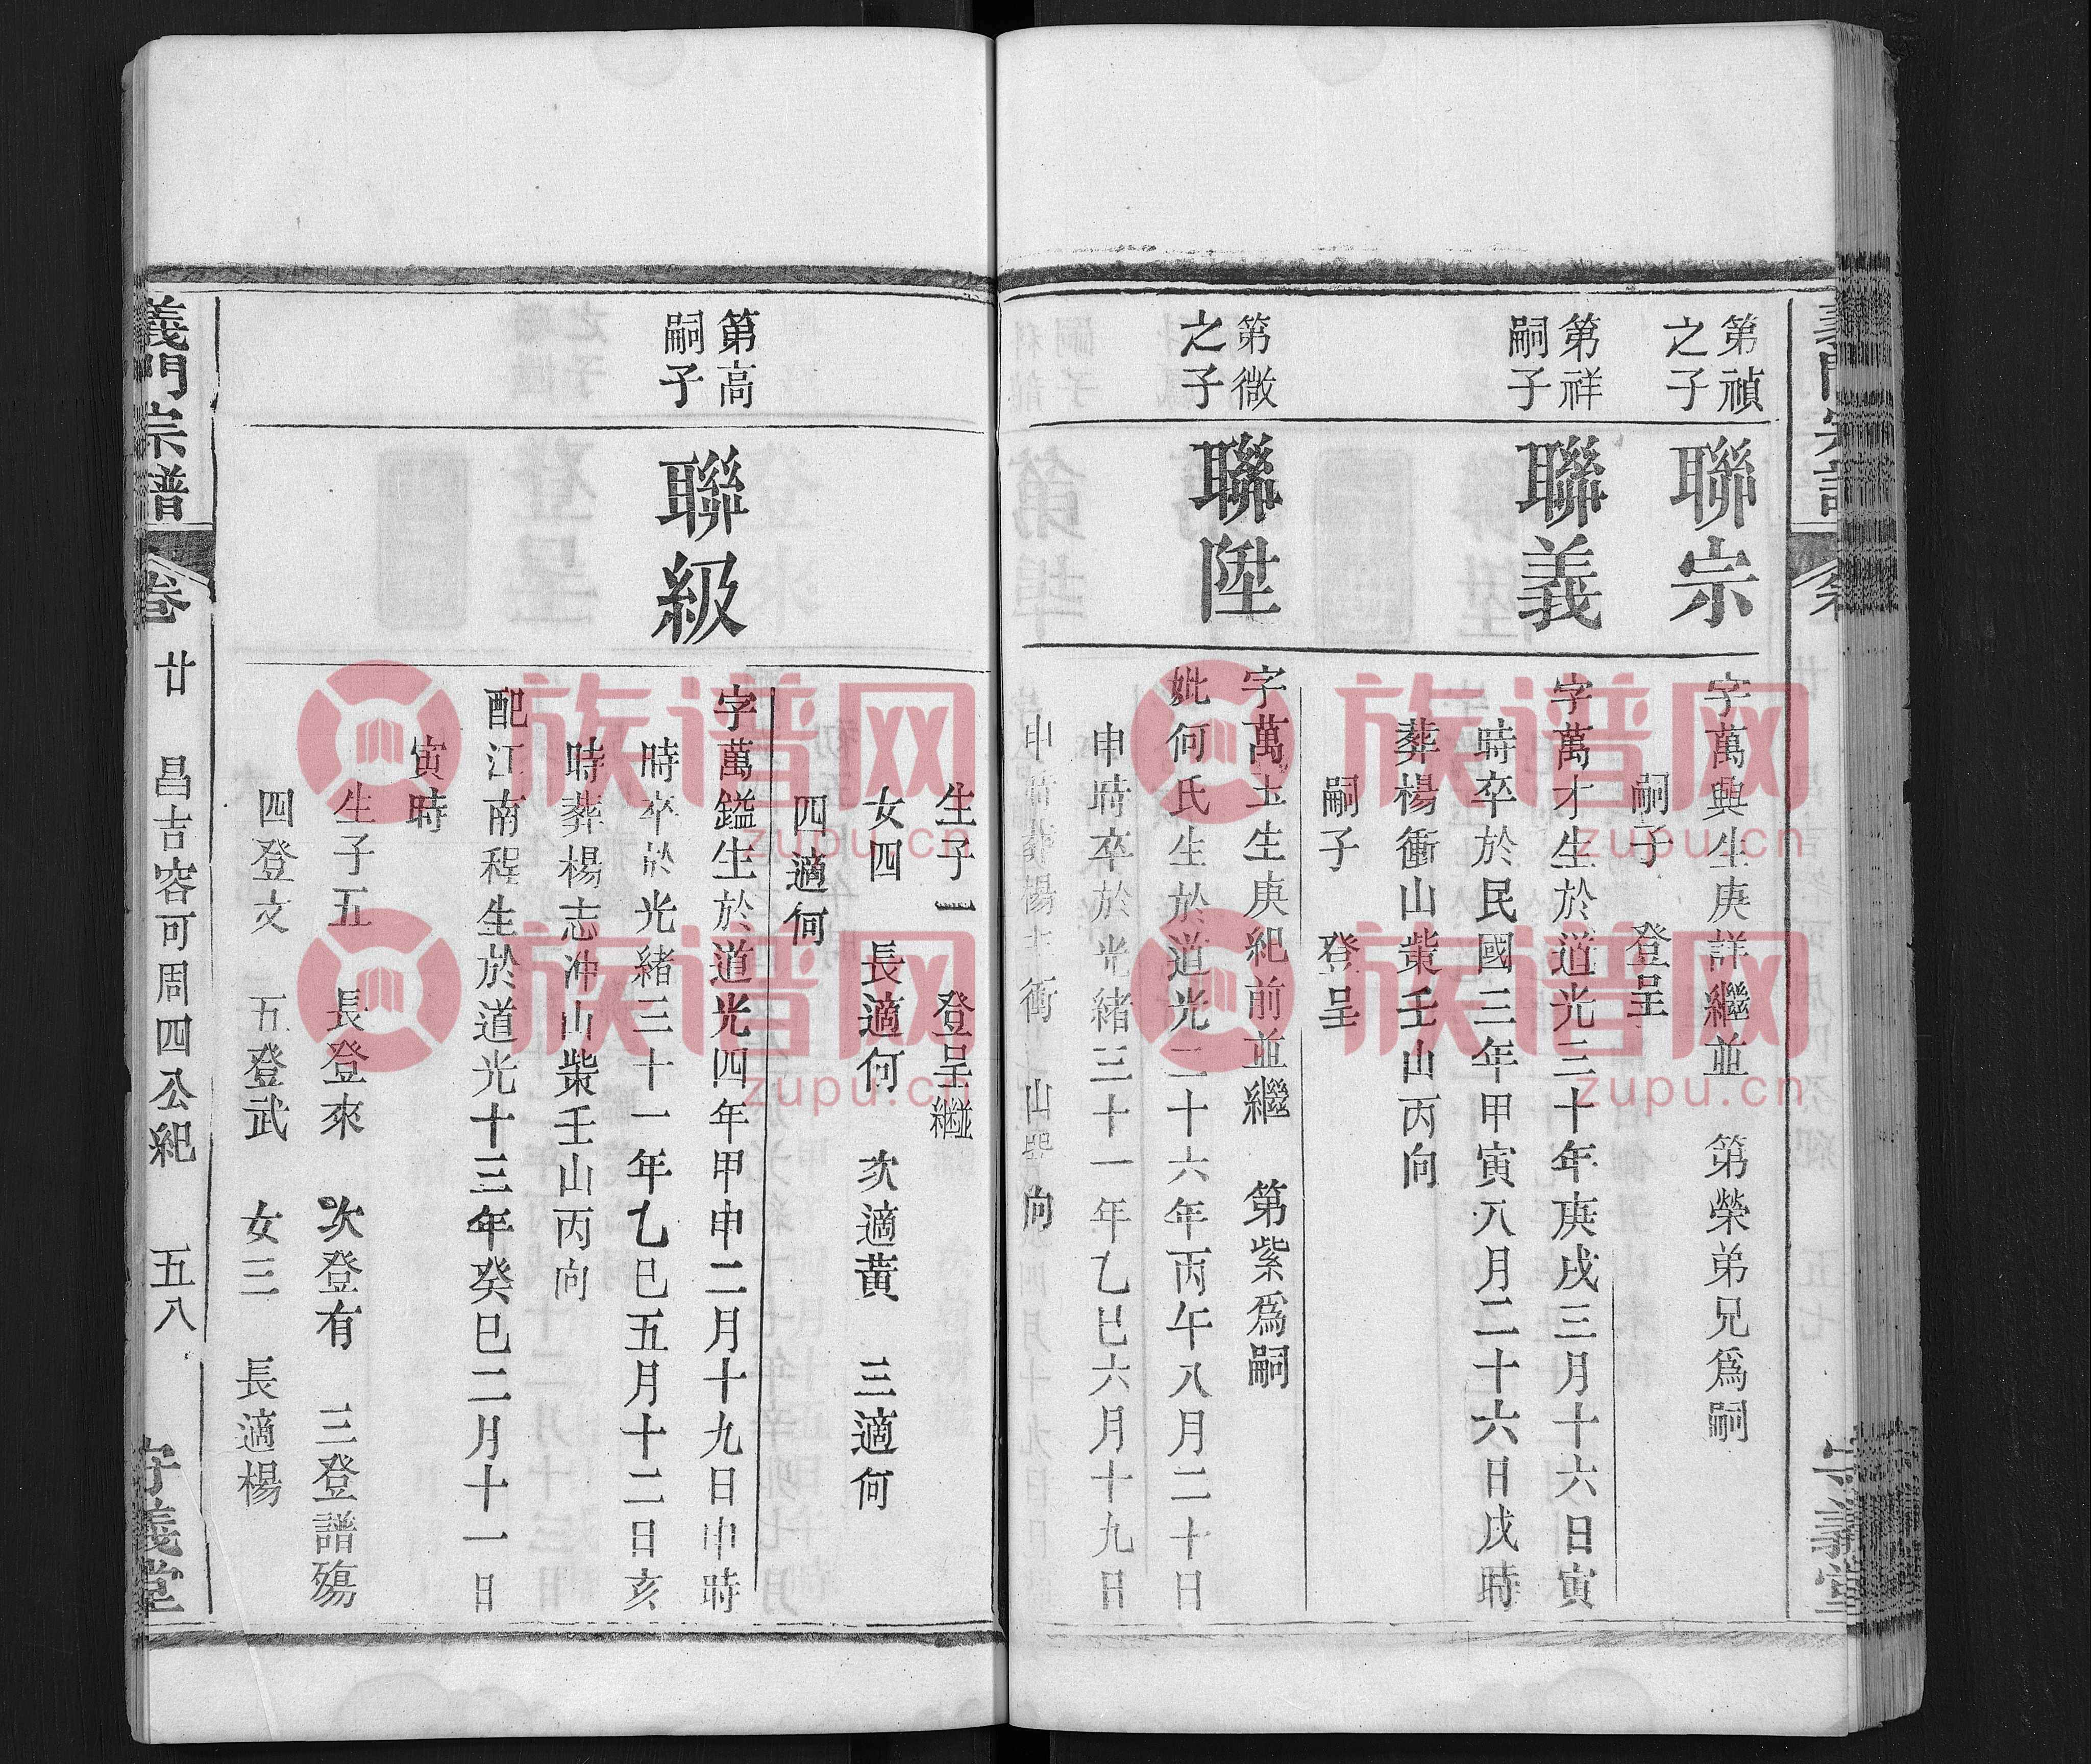 第禎
之子
聯宗
字萬興生庚詳繼並 第榮弟兄爲嗣
嗣子 登呈
第祥
嗣子
聯義
字萬才生於道光三十年庚戌三月十六日寅
時卒於民國三年甲寅八月二十六日戌時
葬楊衝山柴壬山丙向
嗣子 登呈
第微
之子
聯陞
字萬玉生庚紀前並繼 第紫爲嗣
妣何氏生於道光二十六年丙午八月二十日
申時卒於光緒三十一年乙巳六月十九日
申時葬楊 衝 山 向
生子一 登呈繼
女四 長適何 次適黃 三適何
四適何
第高
嗣子
聯級
字萬鎰生於道光四年甲申二月十九日申時
時卒於光緒三十一年乙巳五月十二日亥
時葬楊志冲山柴壬山丙向
配江南程生於道光十三年癸巳二月十一日
寅時
生子五 長登來 次登有 三登譜殤
四登文 五登武 女三 長適楊
義門宗譜 卷 廿 昌吉容可周四公紀 五八 守義堂
族谱网
zupu.cn
族谱网
zupu.cn
族谱网
zupu.cn
族谱网
zupu.cn